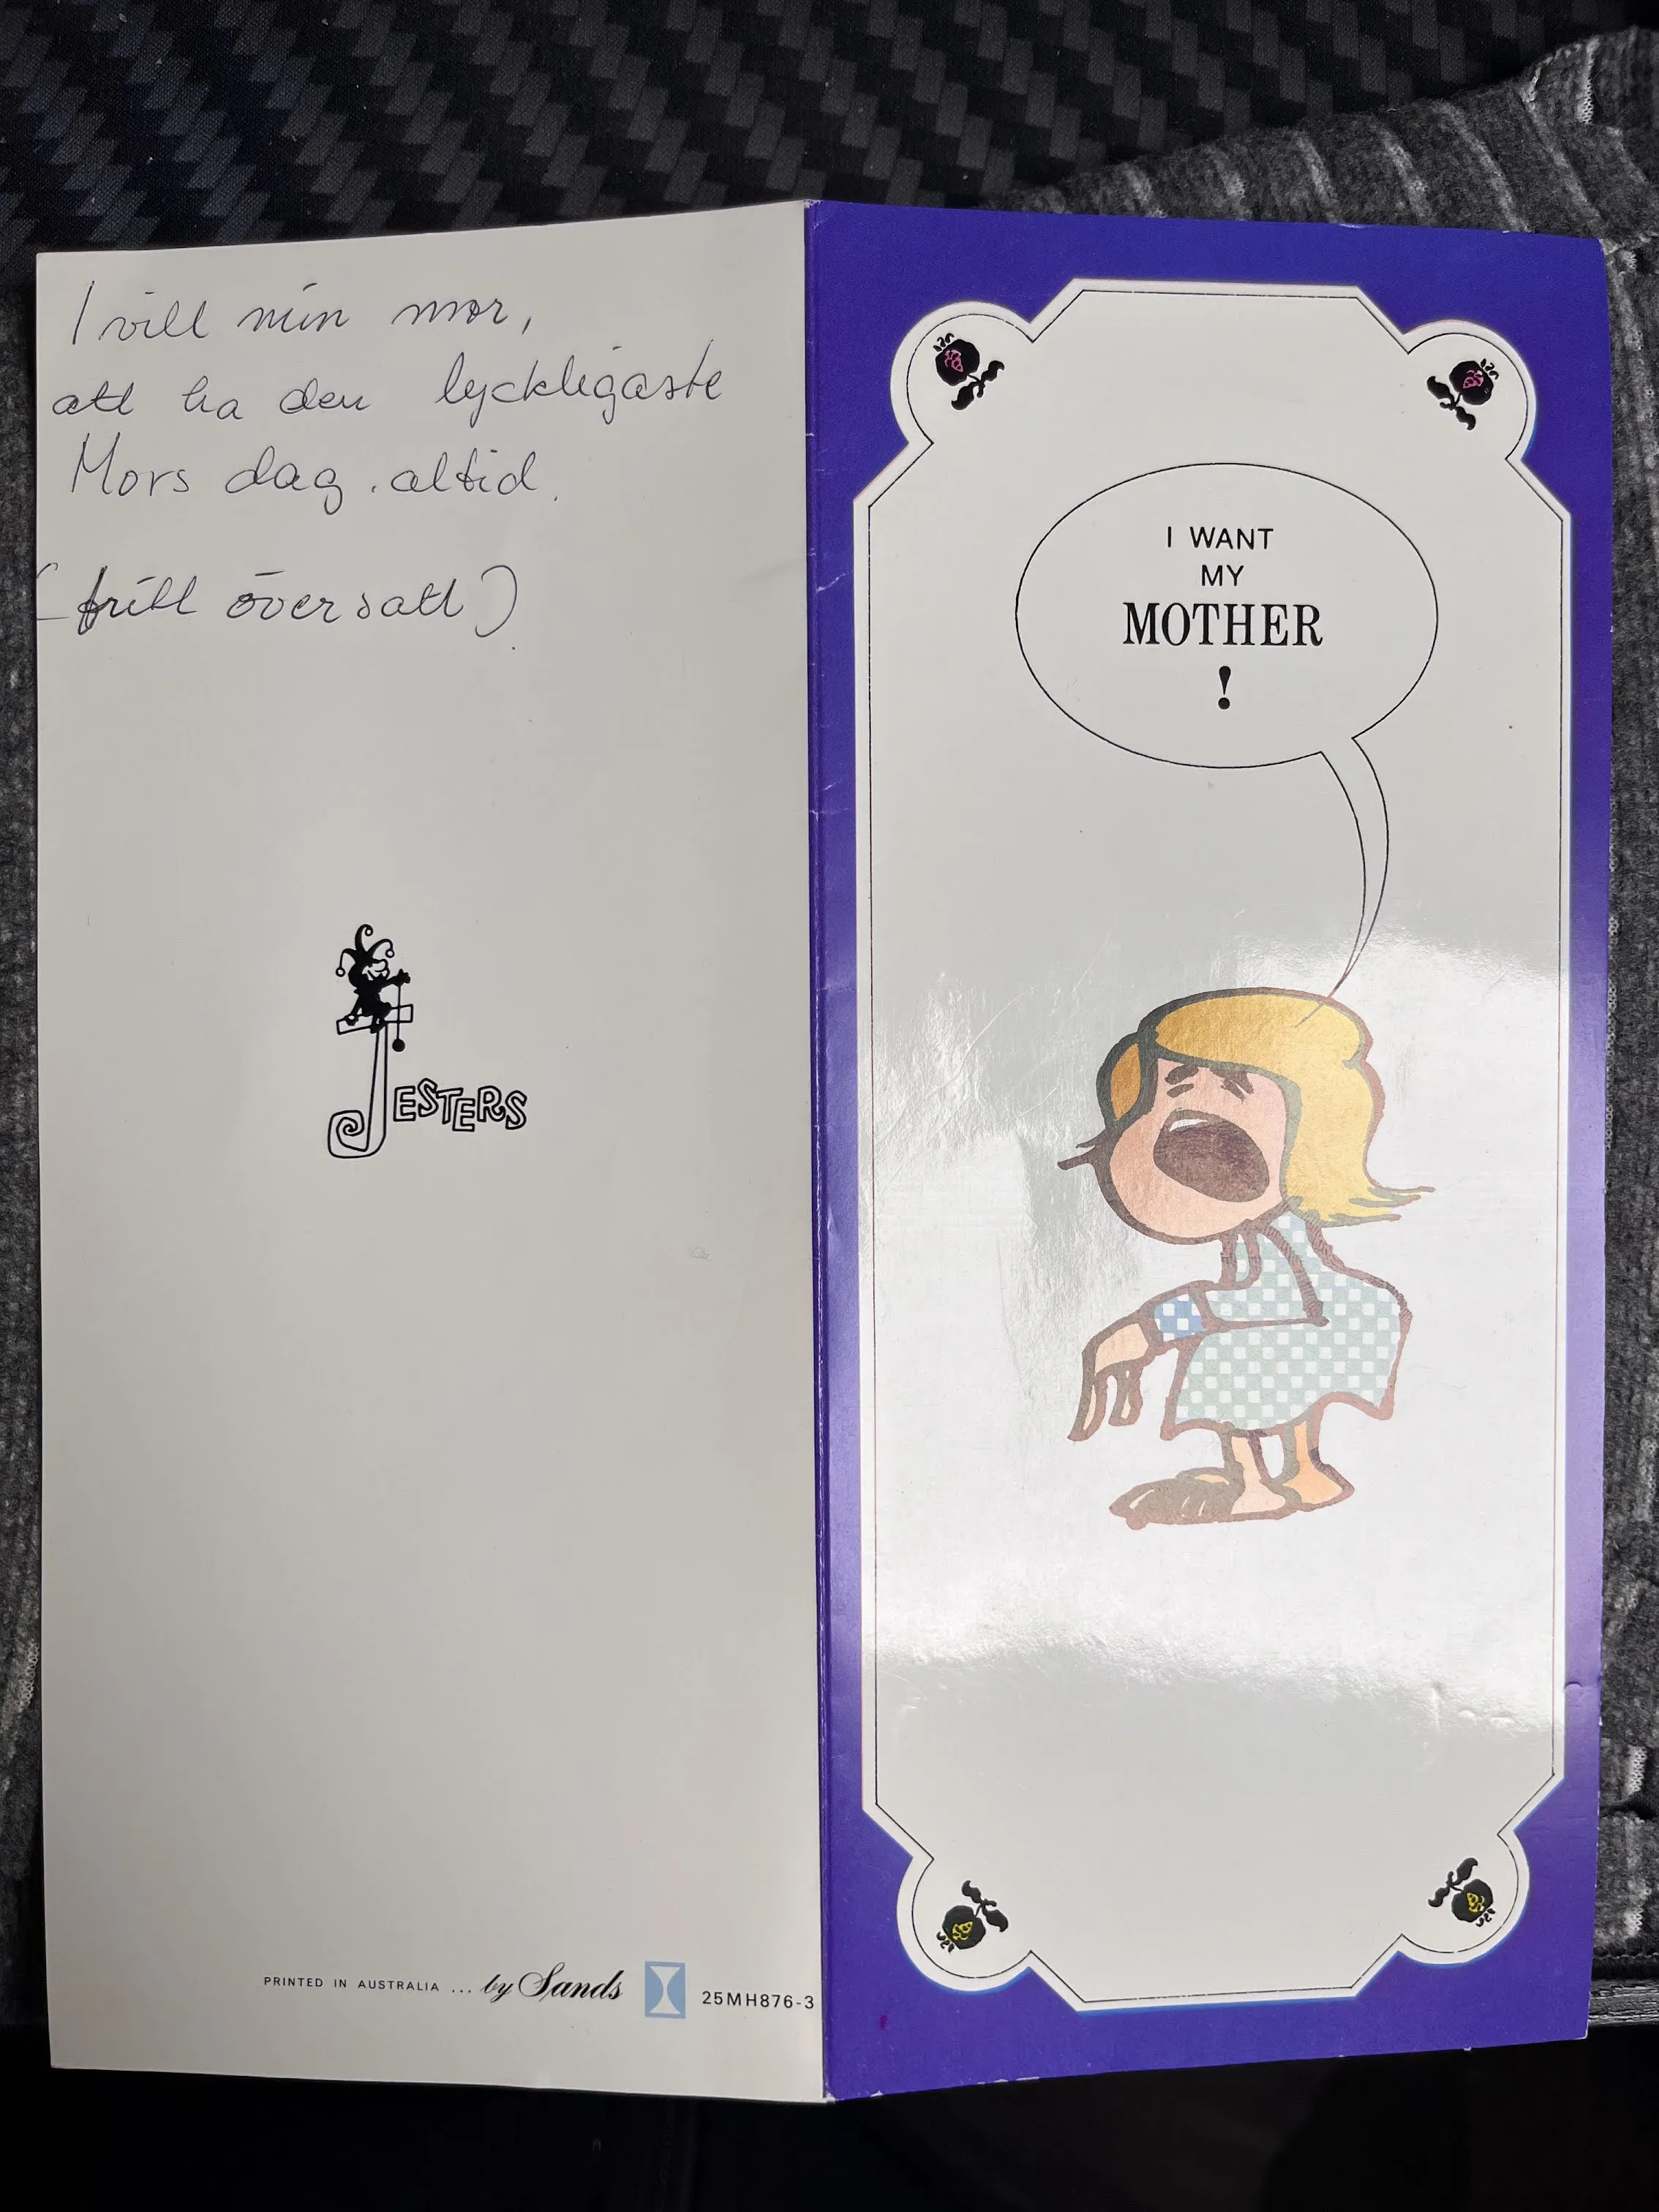 I vill min mor,
att ha den lyckligaste
Mors dag. altid.
(fritt översatt)
JESTERS
PRINTED IN AUSTRALIA ... by Sands
25MH876-3
I WANT
MY
MOTHER
!